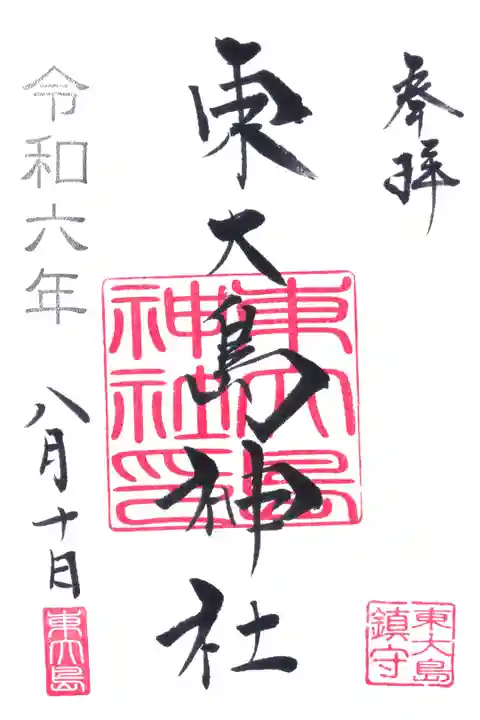 奉拝
東大島
鎮守
東大島神社
東大島
神社印
令和六年
八月十日
東大島